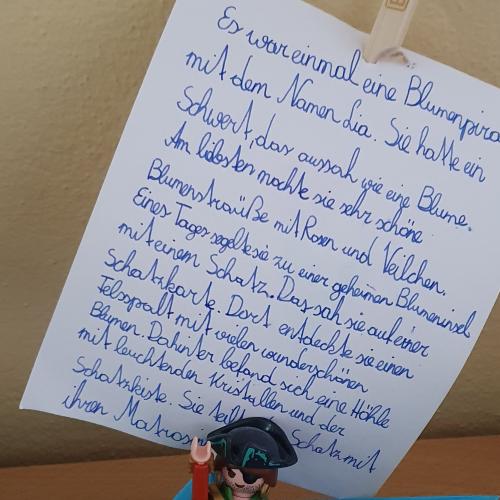 Es war einmal eine Blumenpira
mit dem Namen Lia. Sie hatte ein
Schwert, das aussah wie eine Blume.
Am liebsten mochte sie sehr schöne
Blumensträuße mit Rosen und Veilchen.
Eines Tages segelte sie zu einer geheimen Blumeninsel
mit einem Schatz. Das sah sie auf einer
Schatzkarte. Dort entdeckte sie einen
Felsspalt mit vielen wunderschönen
Blumen. Dahinter befand sich eine Höhle
mit leuchtenden Kristallen und der
Schatzkiste. Sie teilt Schatz mit
ihren Matros